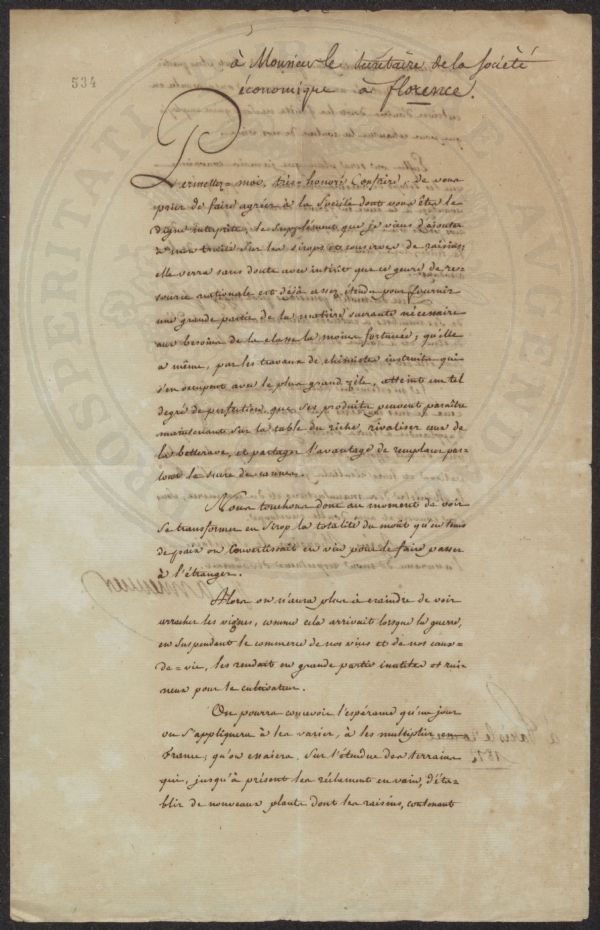 534
à Monsieur le Secrétaire de la Société
économique à florence.
Permettez-moi, très-honoré Confrère, de vous
prier de faire agréer à la Société dont vous êtes le
digne interprète, le Supplément que je viens d'ajouter
à mon traité Sur les sirops et conserves de raisins;
elle verra sans doute avec intérêt que ce genre de res-
source nationale est déjà assez étendu pour fournir
une grande partie de la matière sucrante nécessaire
aux besoins de la classe la moins fortunée; qu'elle
a même, par les travaux de chimistes instruits qui
s'en occupent avec le plus grand zèle, atteint un tel
degré de perfection, que Ses produits peuvent paraître
maintenant Sur la table du riche, rivaliser ceux de
la betterave, et partager l'avantage de remplacer par-
tout le sucre de cannes.
Nous touchons donc au moment de voir
Se transformer en Sirop la totalité du moût qu'en tems
de paix on Convertissait en vin pour le faire passer
à l'étranger.
Alors on n'aura plus à craindre de voir
arracher les vignes, comme cela arrivait lorsque la guerre,
en Suspendant le commerce de nos vins et de nos eaux-
de-vie, les rendait en grande partie inutiles et rui-
neux pour le cultivateur.
On pourra concevoir l'espérance qu'un jour
on S'appliquera à les varier, à les multiplier en
france; qu'on essaiera, Sur l'étendue des terrains
qui, jusqu'à présent les réclament en vain, d'éta-
blir de nouveaux plants dont les raisins, contenant